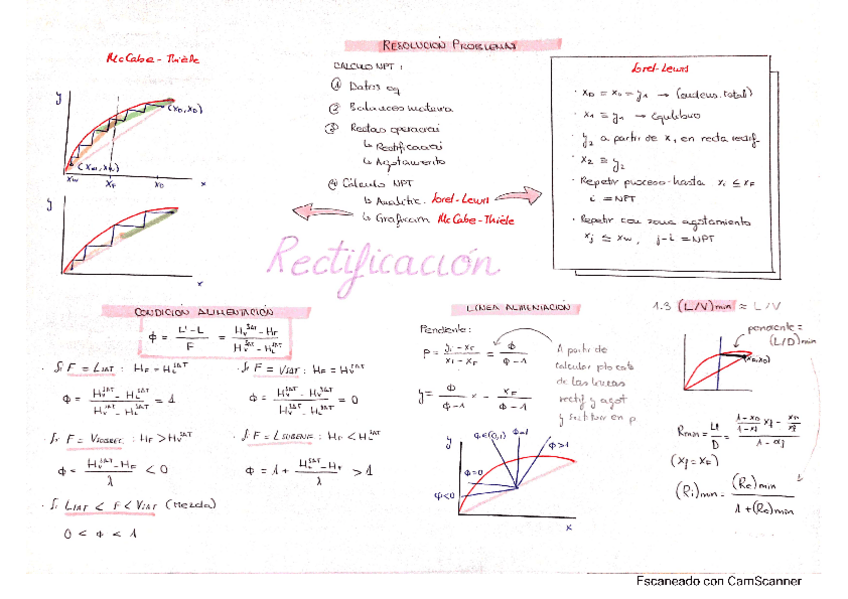 RESOLUCIÓN PROBLEMAS
McCabe-Thièle
y
(xD, xD)
(xw, xw)
xw xF xD x
y
x
CALCULO NPT:
① Datos eq
② Balances materia
③ Rectas operación
↳ Rectificación
↳ Agotamiento
④ Cálculo NPT
↳ Analític. Sorel-Lewis
↳ Graficam McCabe-Thièle
Sorel-Lewis
· xD = x0 = y1 → (condens. total)
· x1 = y1 → Equilibrio
· y2 a partir de x1 en recta rectif.
· x2 = y2
· Repetir proceso hasta xi ≤ xF
i = NPT
· Repetir con zona agotamiento
xj ≤ xw, j-i = NPT
Rectificación
CONDICIÓN ALIMENTACIÓN
ϕ = L'-L / F = HvSAT - HF / HvSAT - HLSAT
· Si F = LSAT : HF = HLSAT
ϕ = HvSAT - HLSAT / HvSAT - HLSAT = 1
· Si F = VSAT : HF = HvSAT
ϕ = HvSAT - HvSAT / HvSAT - HLSAT = 0
· Si F = VSOBREC : HF > HvSAT
ϕ = HvSAT - HF / λ < 0
· Si F = LSUBENF : HF < HLSAT
ϕ = 1 + HLSAT - HF / λ > 1
· Si LSAT < F < VSAT (Mezcla)
0 < ϕ < 1
LÍNEA ALIMENTACIÓN
Pendiente:
p = yi - xF / xi - xF = ϕ / ϕ-1
y = ϕ / ϕ-1 x - xF / ϕ-1
A partir de
calcular pto corte
de las líneas
rectif y agot
y sustituir en p
y
ϕ∈(0,1) ϕ=1 ϕ>1
ϕ=0
ϕ<0
x
1.3 (L/V)min ≈ L/V
pendiente =
(L/D)min
(xD, xD)
(xf = xF)
(Ri)min = (Re)min / 1 + (Re)min
Escaneado con CamScanner